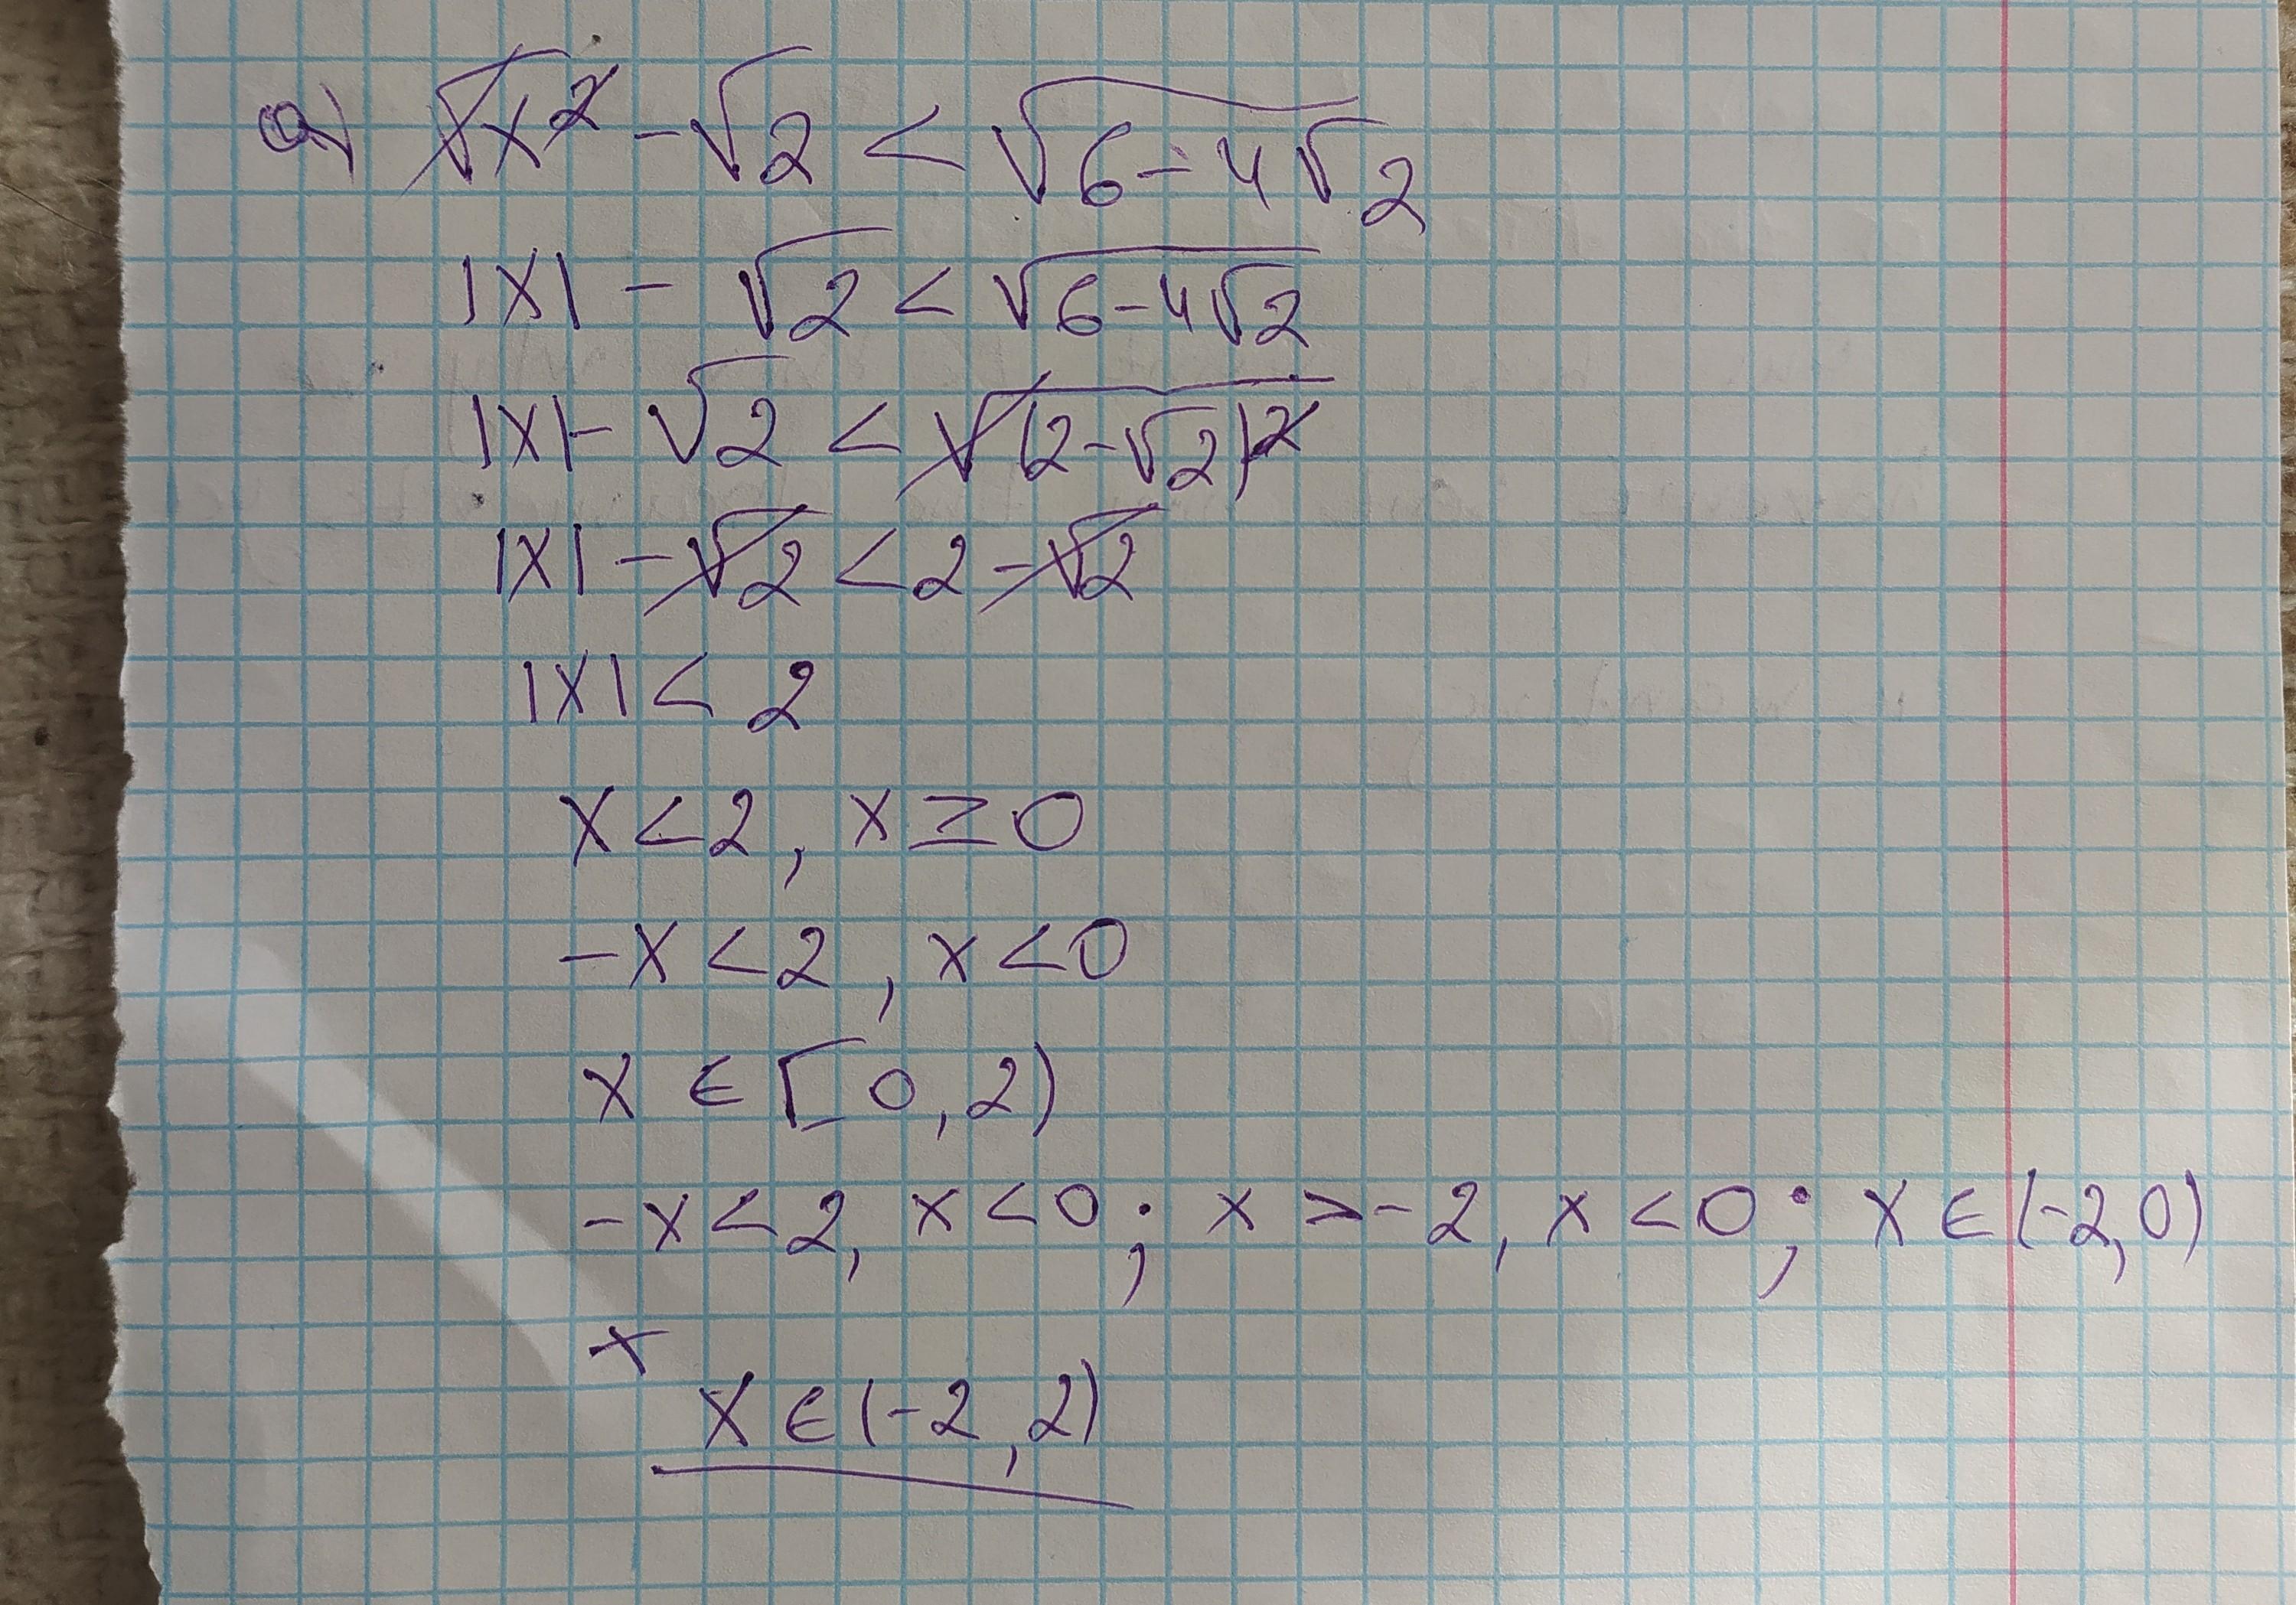 a) √x² - √2 < √6-4√2
|x| - √2 < √6-4√2
|x| - √2 < √(2-√2)²
|x| - √2 < 2 - √2
|x| < 2
x < 2, x ≥ 0
-x < 2, x < 0
x ∈ [0, 2)
-x < 2, x < 0; x > -2, x < 0; x ∈ (-2, 0)
x
x ∈ (-2, 2)